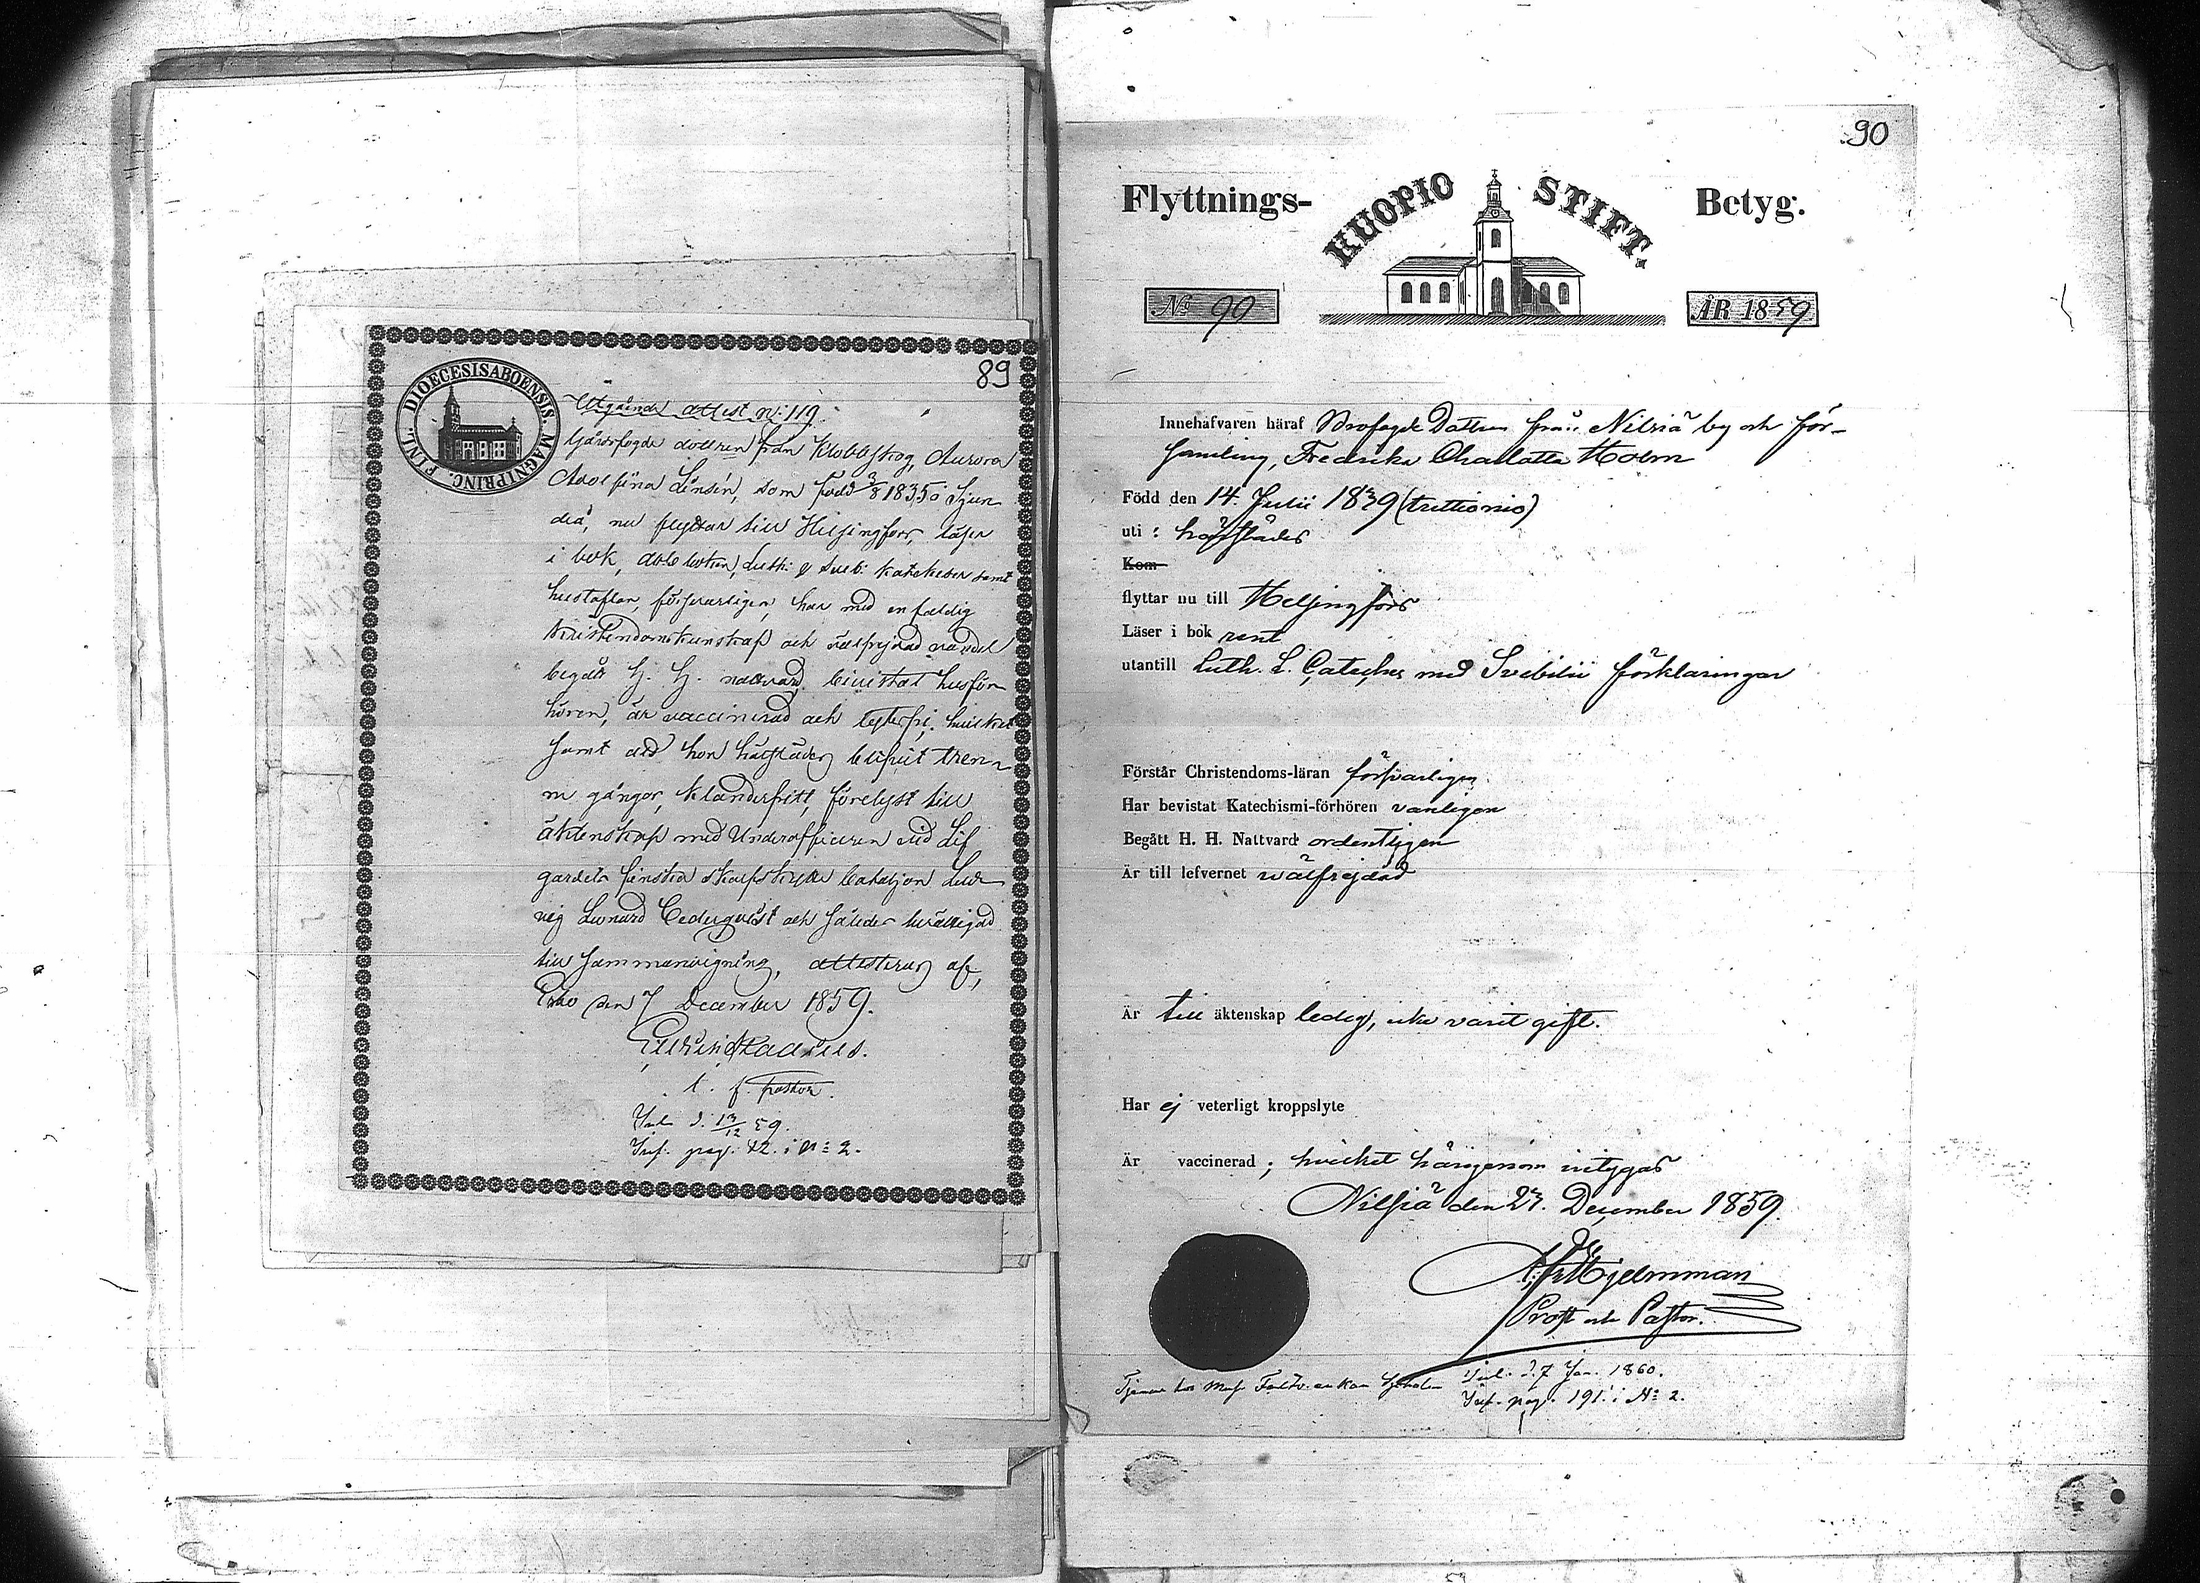 89
DIOECESIS ABOENSIS. MAGNI PRINC. FINL.
Utgående attest No: 119.
dottren från Klobbskog, Aurora
Adolfina Linsén, som född 3/8 1835 i Sjun
deå, nu flyttar till Helsingfors, läser
i bok, abc boken, Luth: & Sveb: Katekeser samt
hustaflan, försvarligen, har med enfaldig
Kristendomskunskap och välfrejdad vandel
begått H. H. nattvard, bevistat husför
hören, är vaccinerad och lytesfri; hvilket
samt att hon härstädes blifvit tren-
ne gånger, klanderfritt, förelyst till
äktenskap med Underofficeren vid Lif
gardets finska skarpskytte bataljon Lud
vig Leonard Cederqvist och således berättigad
till sammanvigning, attesteras af,
Esbo den 7 December 1859.
t. f. pastor.
Inl. d. 13/12 59.
Inf. pag. 42. i No: 2.
90
Flyttnings- KUOPIO STIFT. Betyg.
No 99 ÅR 1859
Innehafvaren häraf Brofogde Dottren från Nilsiä by och för-
samling, Fredrika Charlotta Holm
Född den 14. Julii 1839 (trettionio)
uti: härstädes
Kom
flyttar nu till Helsingfors
Läser i bok rent
utantill Luth. L. Cateches med Svebilii förklaringar
Förstår Christendoms-läran försvarligen
Har bevistat Katechismi-förhören vanligen
Begått H. H. Nattvard ordentligen
Är till lefvernet välfrejdad
Är till äktenskap ledig, icke varit gift.
Har ej veterligt kroppslyte
Är vaccinerad; hvilket härigenom intygas
Nilsiä den 27. December 1859.
Hjelmman
Prost och Pastor.
Tjenar hos
Inl. d. 7 Jan. 1860.
Inf. pag. 191. i No: 2.